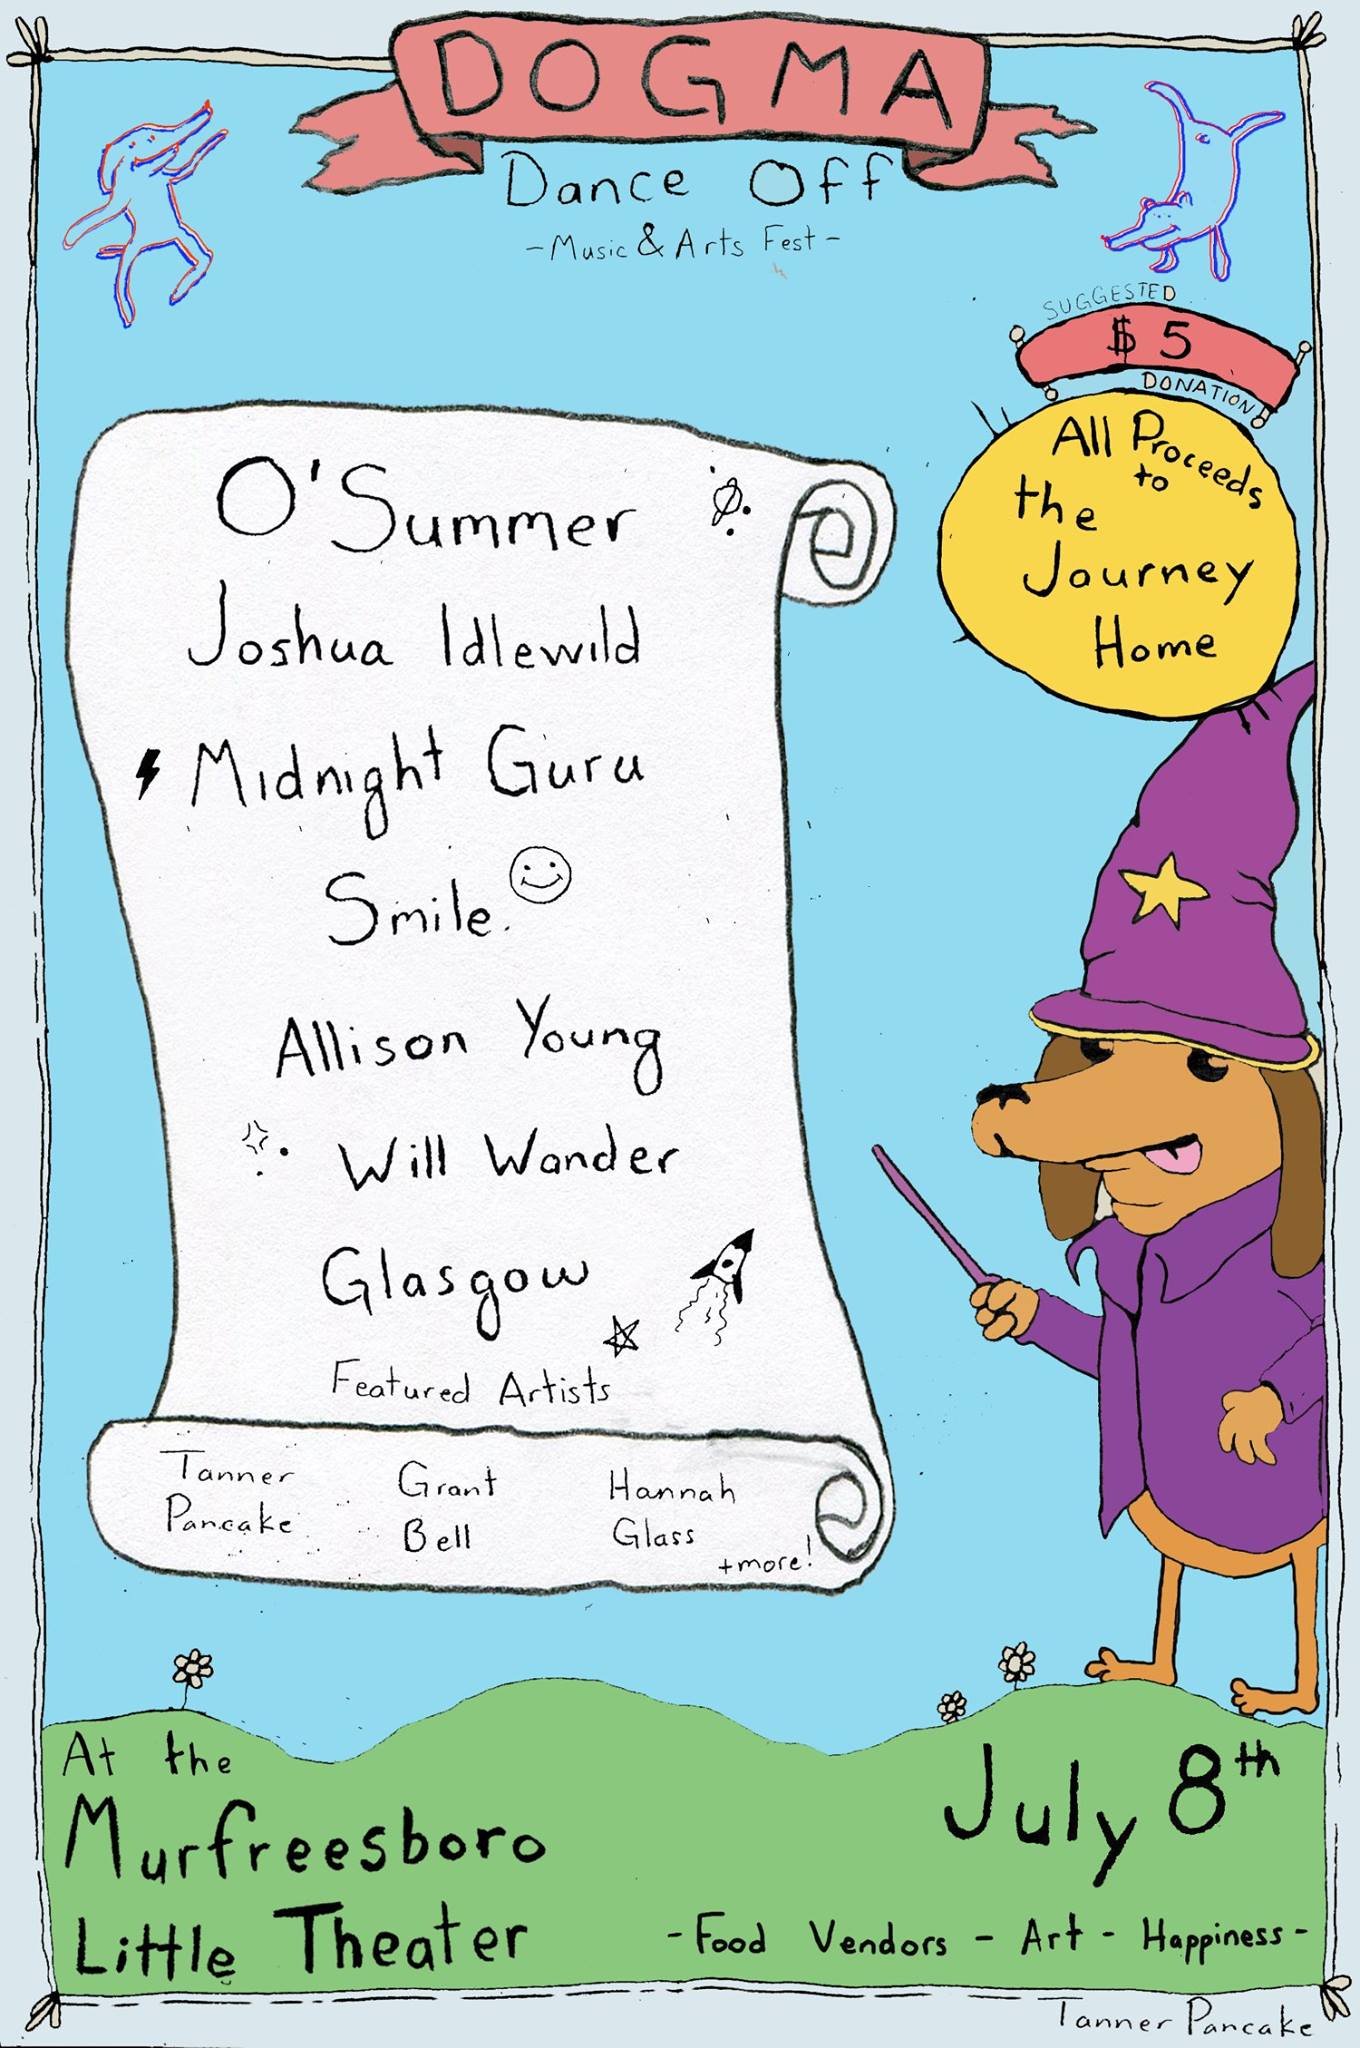 DOGMA
Dance Off
- Music & Arts Fest -
SUGGESTED
$ 5
DONATION
All Proceeds
to
the
Journey
Home
O'Summer
Joshua Idlewild
Midnight Guru
Smile.
Allison Young
Will Wander
Glasgow
Featured Artists
Tanner
Pancake
Grant
Bell
Hannah
Glass
+more!
At the
Murfreesboro
Little Theater
July 8th
- Food Vendors - Art - Happiness -
Tanner Pancake